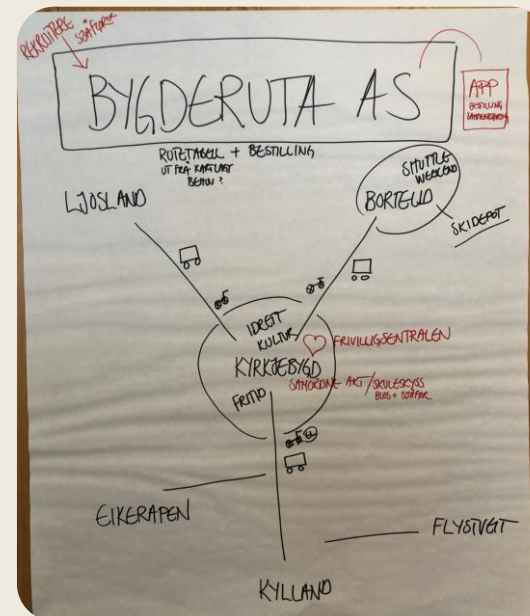 REKRUTTERE
SJÅFØRER
BYGDERUTA AS
APP
BESTILLING
RUTETABELL + BESTILLING
UT FRÅ KARTLAGT
BEHOV?
LJOSLAND
SHUTTLE
WEEKEND
BORTELID
SKIDEPOT
IDRETT
KULTUR
FRIVILLIGSENTRALEN
KYRKJEBYGD
SAMORDNE AKT/SKULESKYSS
BUSS + SJÅFØR
FRITID
EL
EIKERAPEN
FLYSTVEIT
KYLLAND